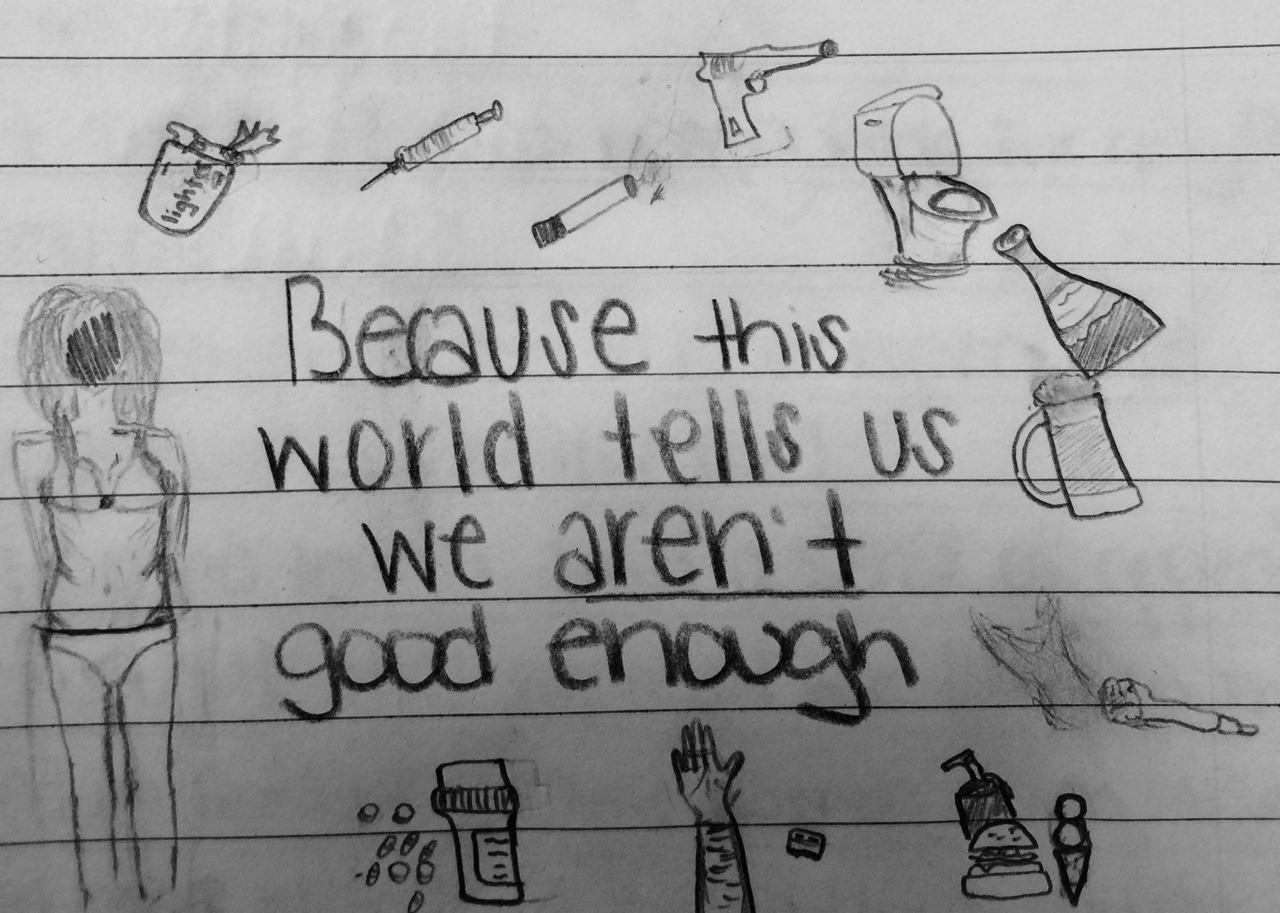 lighter
Because this
world tells us
we aren't
good enough